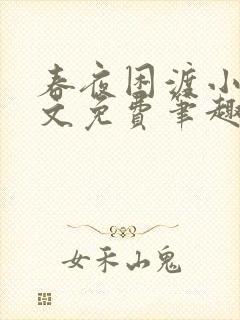 春夜困渡小
文免费笔趣
女禾山鬼